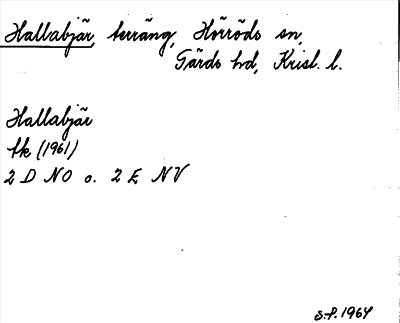 Hallabjär, terräng, Hörröds sn,
Gärds hd, Krist. l.
Hallabjär
fk (1961)
2 D NO o. 2 E NV
S.F. 1964